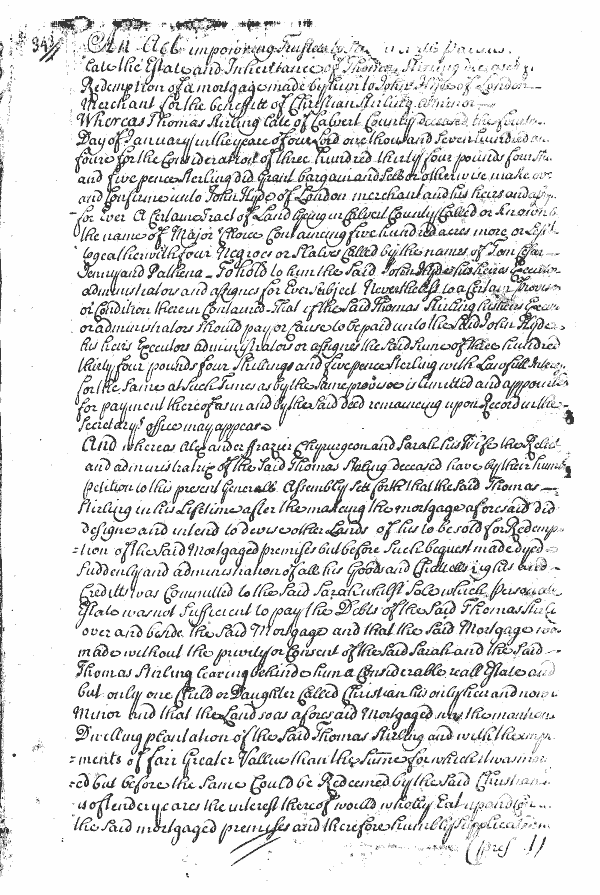 343
An Act impowering Trustees to
cate the Estate and Inheritance of Thomas Stirling deceased
Redemption of a mortgage made by him to John Hyde of London
Merchant for the benefitt of Christian Stirling a minor
Whereas Thomas Stirling late of Calvert County deceased the
Day of January in the yeare of our Lord one thousand Seven hundred an
foure for the Consideration of three hundred thirty four pounds four
and five pence Sterling did Grant bargain and Sell or otherwise make over
and Confirme unto John Hyde of London merchant and his heirs and
for Ever A Certaine Tract of Land lyeing in Calvert County Called or Known by
the name of Major Choice Containeing five hundred acres more or Less
togeather with four Negroes or Slaves Called by the names of Tom
Jenny and To hold to him the Said John Hyde his heires Executors
administrators and assignes for Ever Subject Nevertheless to a Certain Proviso
or Condition therein Contained That if the Said Thomas Stirling his heirs
or administrators Should pay or Cause to be paid unto the Said John Hyde
his heirs Executors administrators or assignes the Said Sume of three hundred
thirty four pounds four Shillings and five pence Sterling with Lawfull
for the Same at Such times as by the Same provisoe is limitted and appointed
for payment thereof as in and by the Said deed remaineing upon Record in the
Secretarys office may appear
And whereas Alexander Frazier Chyrurgeon and Sarah his Wife the Relict
and administratrix of the Said Thomas Stirling deceased have by their humb
Petition to this present Generall Assembly Sett forth that the Said Thomas
Stirling in his Lifetime after the makeing the mortgage aforesaid did
designe and intend to devise other Lands of his to be sold for Redemp
tion of the Said Mortgaged premises but before Such bequest made dyed
Suddenly and administration of all his Goods and Chattells rights and
Credits was Committed to the Said Sarah whilst Sole which Personall
Estate was not Sufficient to pay the Debts of the Said Thomas
over and beside the Said Mortgage and that the Said Mortgage was
made without the privity or Consent of the Said Sarah and the Said
Thomas Stirling leaving behinde him a Considerable reall Estate and
but only one Child or Daughter Called Christian his only heir and now
Minor and that the Land soe as aforesaid Mortgaged was the mantion
Dwelling plantation of the Said Thomas Stirling and with the
ments of farr Greater Vallue than the Sume for which it was
ed but before the Same Could be Redeemed by the Said Christian
is of tender yeares the interest thereof would wholly Eat up
the Said mortgaged premises and therefore humbly